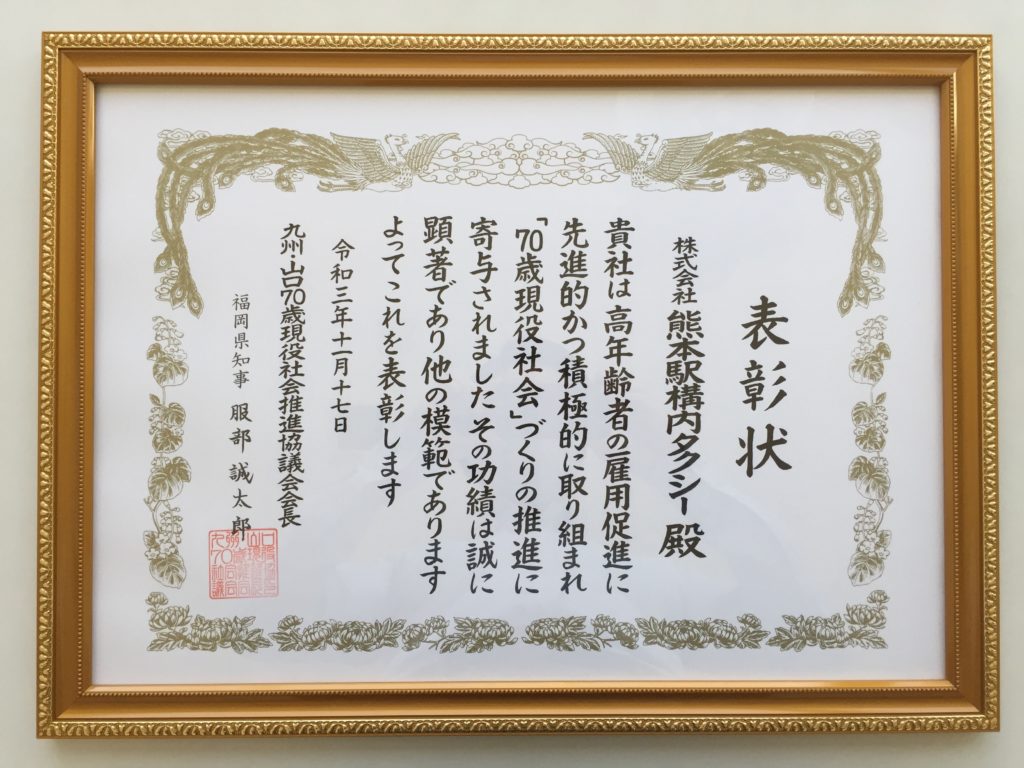 表彰状
株式会社 熊本駅構内タクシー 殿
貴社は高年齢者の雇用促進に
先進的かつ積極的に取り組まれ
「70歳現役社会」づくりの推進に
寄与されました その功績は誠に
顕著であり他の模範であります
よってこれを表彰します
令和三年十一月十七日
九州・山口70歳現役社会推進協議会会長
福岡県知事 服部 誠太郎